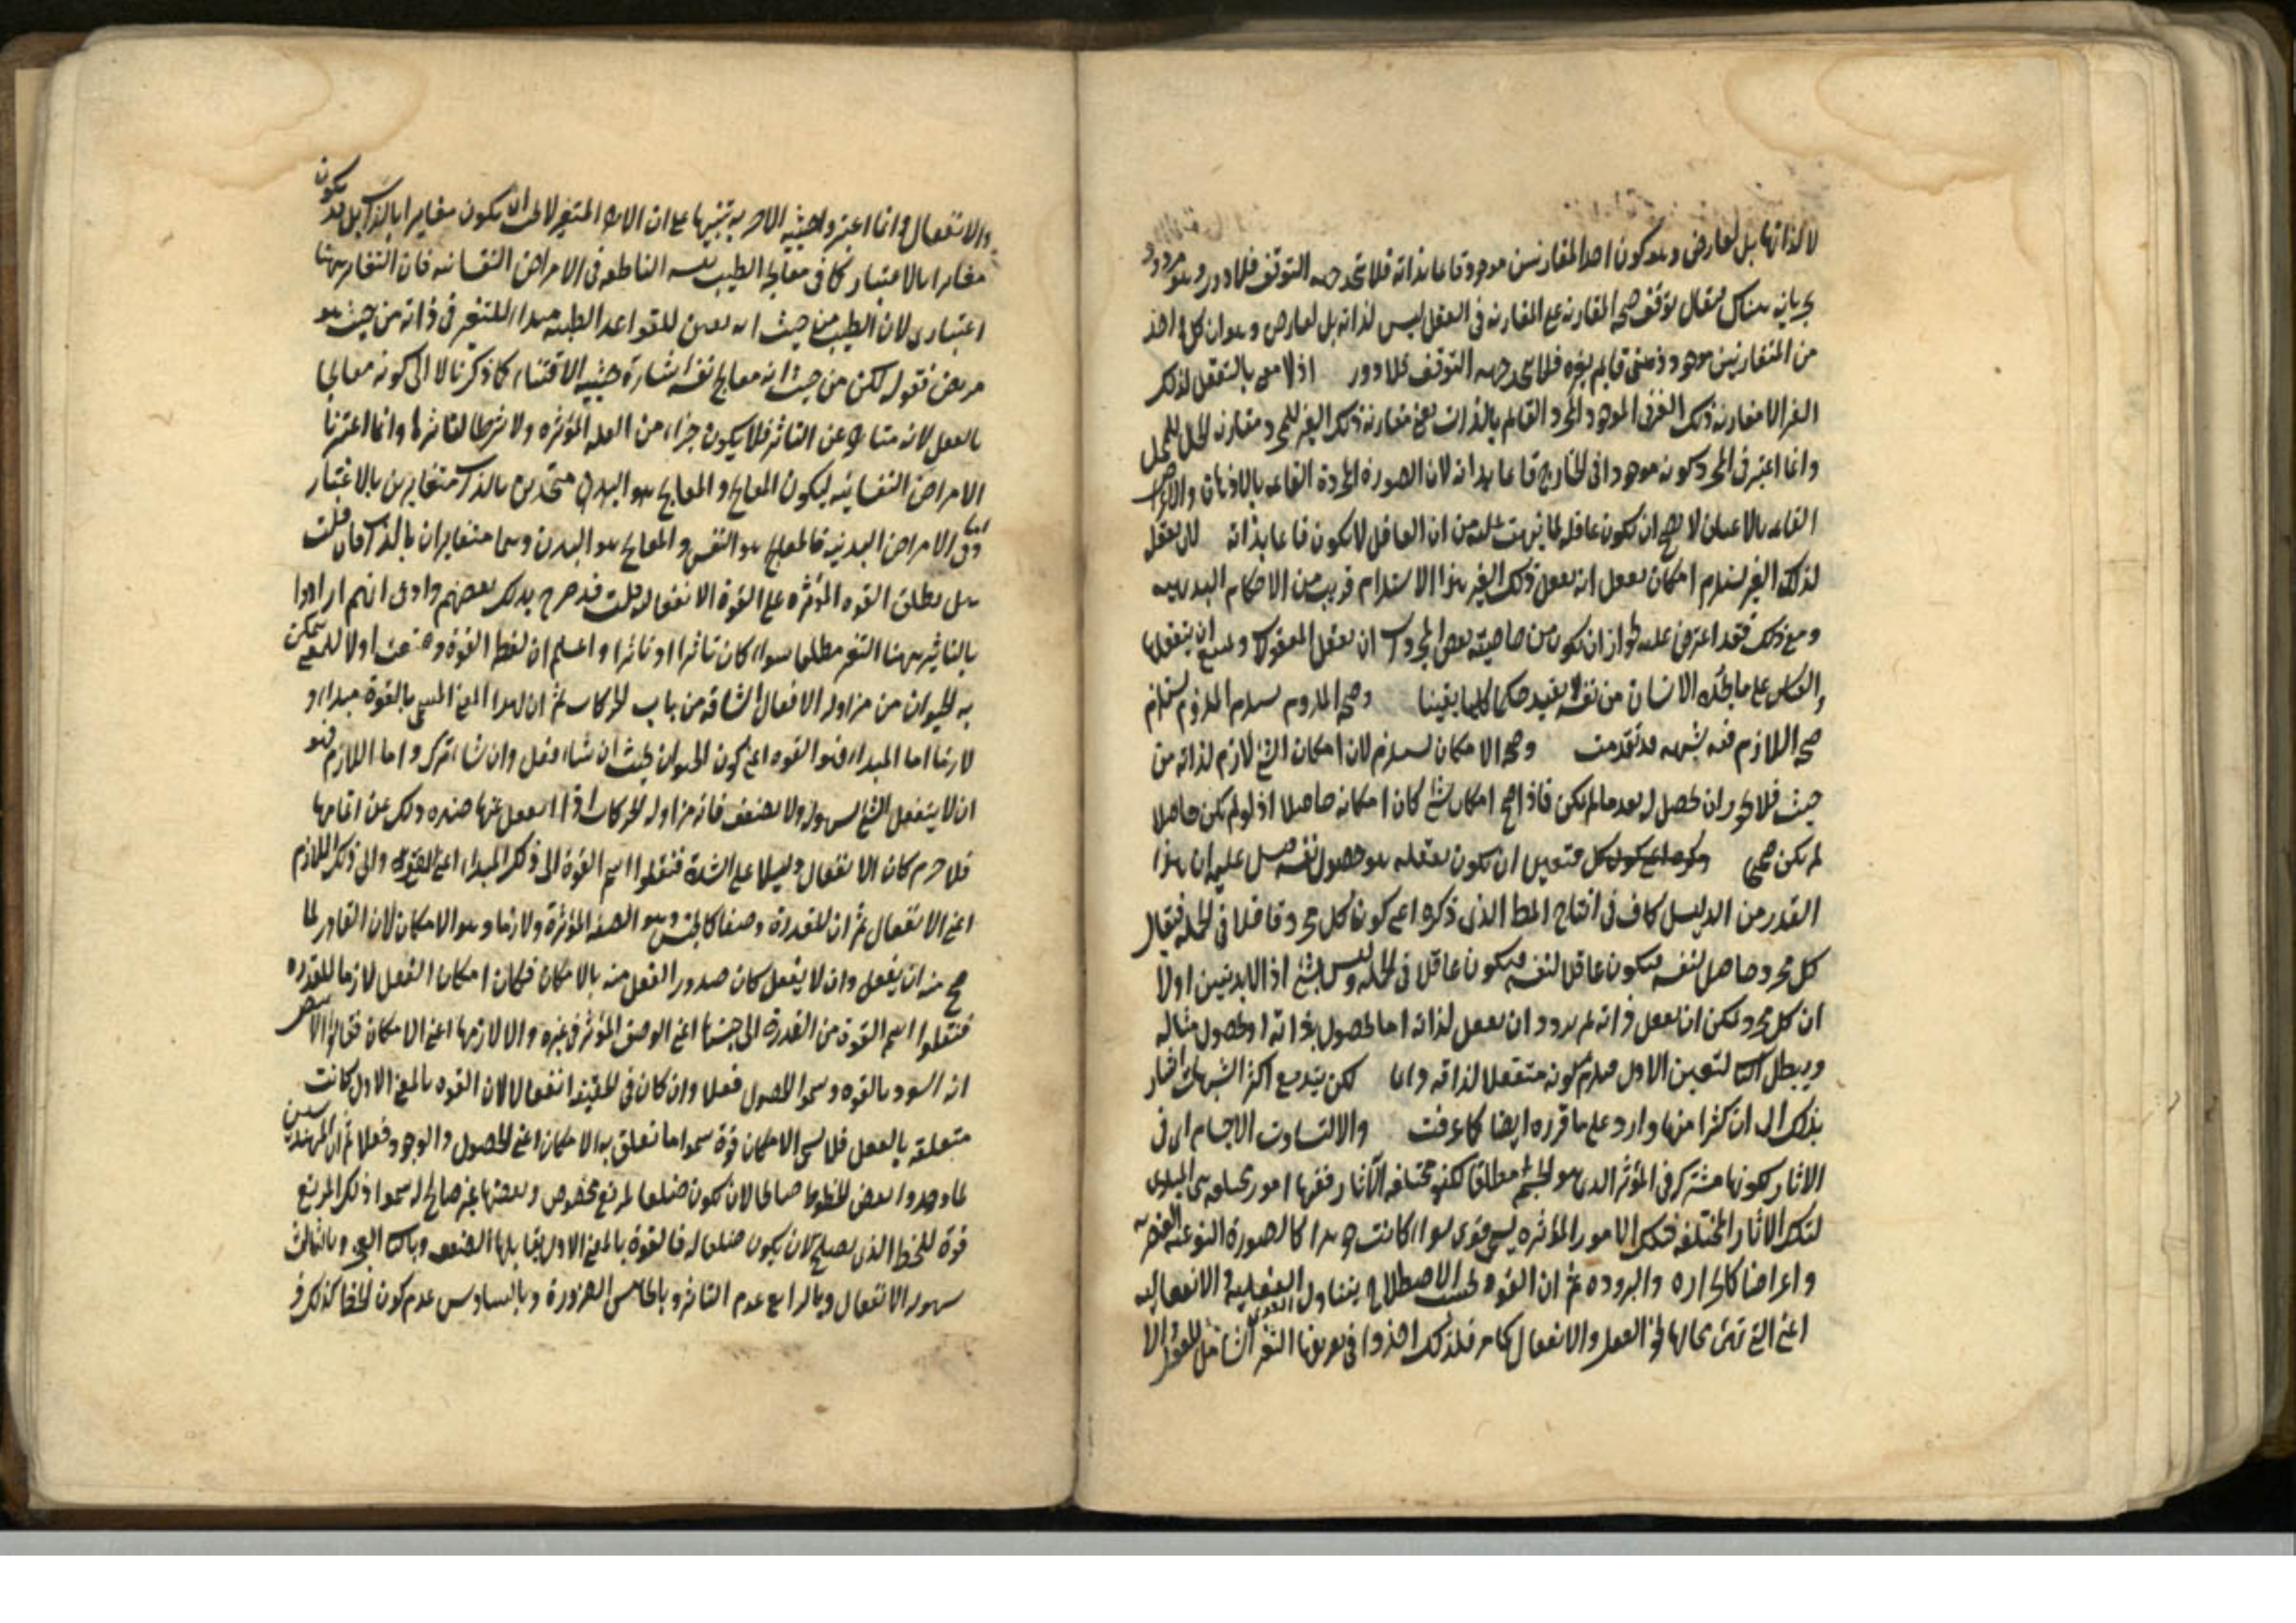 لا لذاتها بل لعارض وهو كون احد المتقارنين موجودا قائما بذاته فلا تتحد جهه التوقف فلا دور وهو مردود
بجريانه هناك فيقال توقف صحه المقارنه على المقارنه فى العقل ليس لذاته بل لعارض وهو ان كل واحد
من المتقارنين موجود ذهنى قايم بغيره فلا تتحد جهه التوقف فلا دور اذ لا معنى بالتعقل لذلك
الغير الا مقارنة ذلك الغير فى الموجود المجرد القايم بالذات يعنى مقارنة ذلك الغير للمجرد مقارنه الحال للمحل
وانما اعتبر فى المجرد كونه موجودا فى الخارج قائما بذاته لان الصورة المجردة القائمه بالاذهان والاعراض
القائمه بالاعيان لا يصح ان تكون عاقله لما من ان العاقل لا يكون الا قائما بذاته لان تعقل
لذلك الغير يستلزم امكان تعقل انه يعقل ذلك الغير هذا الاستلزام قريب من الاحكام البديهيه
ومع ذلك فقد اعترض عليه لجواز ان تكون من خاصيته بعض المجردات ان يعقل المعقولات ويمتنع ان يتعقلها
والقياس على ما يجده الانسان من نفسه لا يفيد حكما كليا يقينا وصحه الملزوم يستلزم
صحه اللازم فيه شبهه قد تقدمت وصحه الامكان يستلزم لان امكان الشئ لازم لذاته من
حيث فلا يجوز ان يحصل له بعد ما لم يكن فاذا صح امكان شئ كان امكانه حاصلا اذ لو لم يكن حاصلا
لم يكن صحيحا فتعين ان يكون تعقله هو حصول نفسه ان هذا
القدر من الدليل كاف فى انتاج المط الذى ذكره اعنى كون كل مجرد عاقلا فى الجمله فيقال
كل مجرد حاصل لنفسه فيكون عاقلا لنفسه فيكون عاقلا فى الجمله وليس بشئ اذ لا بد يبين اولا
ان كل مجرد يمكن ان يعقل ذاته ثم يردد ان تعقل لذاته اما لحصول ذاته او لحصول مثاله
ويبطل الثانى لتعين الاول فيلزم كونه متعقلا لذاته دائما لكن يندفع اكثر الشبهات اشار
بذلك الى ان كثيرا منها وارد على ما قرره ايضا كما عرفت والا لتساوت الاجسام اى فى
الاثار لكونها مشتركة فى المؤثر الذى هو الجسم مطلقا لكنها مختلفه الآثار ففيها امور مختلفه هى المبادى
لتلك الاثار المختلفه فتلك الامور المؤثره يسمى قوى سواء كانت جوهرا كالصورة النوعيه العنصريه
واعراضا كالحراره والبروده ثم ان القوه بحسب الاصطلاح يتناول القوه الفعليه والانفعاليه
اعنى التى تهئ محالها نحو الفعل والانفعال كما مر فلذلك اخذوا فى تعريفها التغير الشامل للفعل والا
والانفعال وانما اعتبروا حيثيه الاخر به تنبيها على ان الاخر المتغير لا يجب ان يكون مغايرا بالذات بل قد يكون
مغايرا بالاعتبار كما فى معالجه الطبيب نفسه الناطقه فى الامراض النفسانيه فان التغاير ههنا
اعتبارى لان الطبيب من حيث انه يعين للقواعد الطبيه مبدا للتغير فى ذاته من حيث هو
مريض فقوله لكن من حيث انه معالج نفسه اشارة حيثيه الاقتناء كما ذكرنا لا الى كونه معالجا
بالفعل لانه متأخر عن التاثير فلا يكون جزءا من العله المؤثره ولا شرطا لتاثيرها وانما اعتبرنا
الامراض النفسانيه ليكون المعالج والمعالج متحدين بالذات متغايرين بالاعتبار
وفى الامراض البدنيه فالمعالج هو النفس والمعالج هو البدن وهما متغايران بالذات فان قلت
هل يطلق القوه المؤثره على القوة الانفعاليه قلت قد صرح بذلك بعضهم وادعى انهم ارادوا
بالتاثير ههنا التغير مطلقا سواء كان تاثيرا او تاثرا واعلم ان لفظ القوة وضعت اولا للمعنى يتمكن
به الحيوان من مزاوله الافعال الشاقه من باب الحركات ثم ان لهذا المعنى المسمى بالقوة مبداء و
لازما اما المبداء فهو القوه اعنى كون الحيوان بحيث ان شاء فعل وان شاء ترك واما اللازم فهو
ان لا ينفعل الشئ بسهوله ولا يضعف فان مزاوله الحركات اذا انفعل عنها صده ذلك عن اتمامها
فلا جرم كان الا انفعال دليلا على الشدة فنقلوا اسم القوة الى ذلك المبداء اعنى القدرة والى ذلك اللازم
اعنى الا انفعال ثم ان للقدرة وصفا كالجنس وهو الصفه المؤثرة ولازما وهو الامكان لان القادر لما
صح منه ان يفعل وان لا يفعل كان صدور الفعل منه بالامكان فكان امكان الفعل لازما للقدره
فنقلوا اسم القوة من القدرة الى جنسها اعنى الوصف المؤثر فى غيره والى لازمها اعنى الامكان فقالوا للابيض
انه اسود بالقوه وسموا الحصول فعلا وان كان فى الحقيقه انفعالا لان القوه بالمعنى الاول كانت
متعلقه بالفعل فلما سمى الامكان قوة سموا ما تعلق به الامكان اعنى الحصول والوجود فعلا ثم ان المهندسين
لما وجدوا بعض الخطوط صالحا لان تكون ضلعا لمربع مخصوص وبعضها غير صالح له سموا ذلك المربع
قوة للخط الذى يصلح لان يكون ضلعا له فالقوة بالمعنى الاول يقابلها الضعف وبالثانى العجز وبالثالث
سهوله الانفعال وبالرابع عدم التاثير وبالخامس الضرورة وبالسادس عدم كون الخط كذلك و